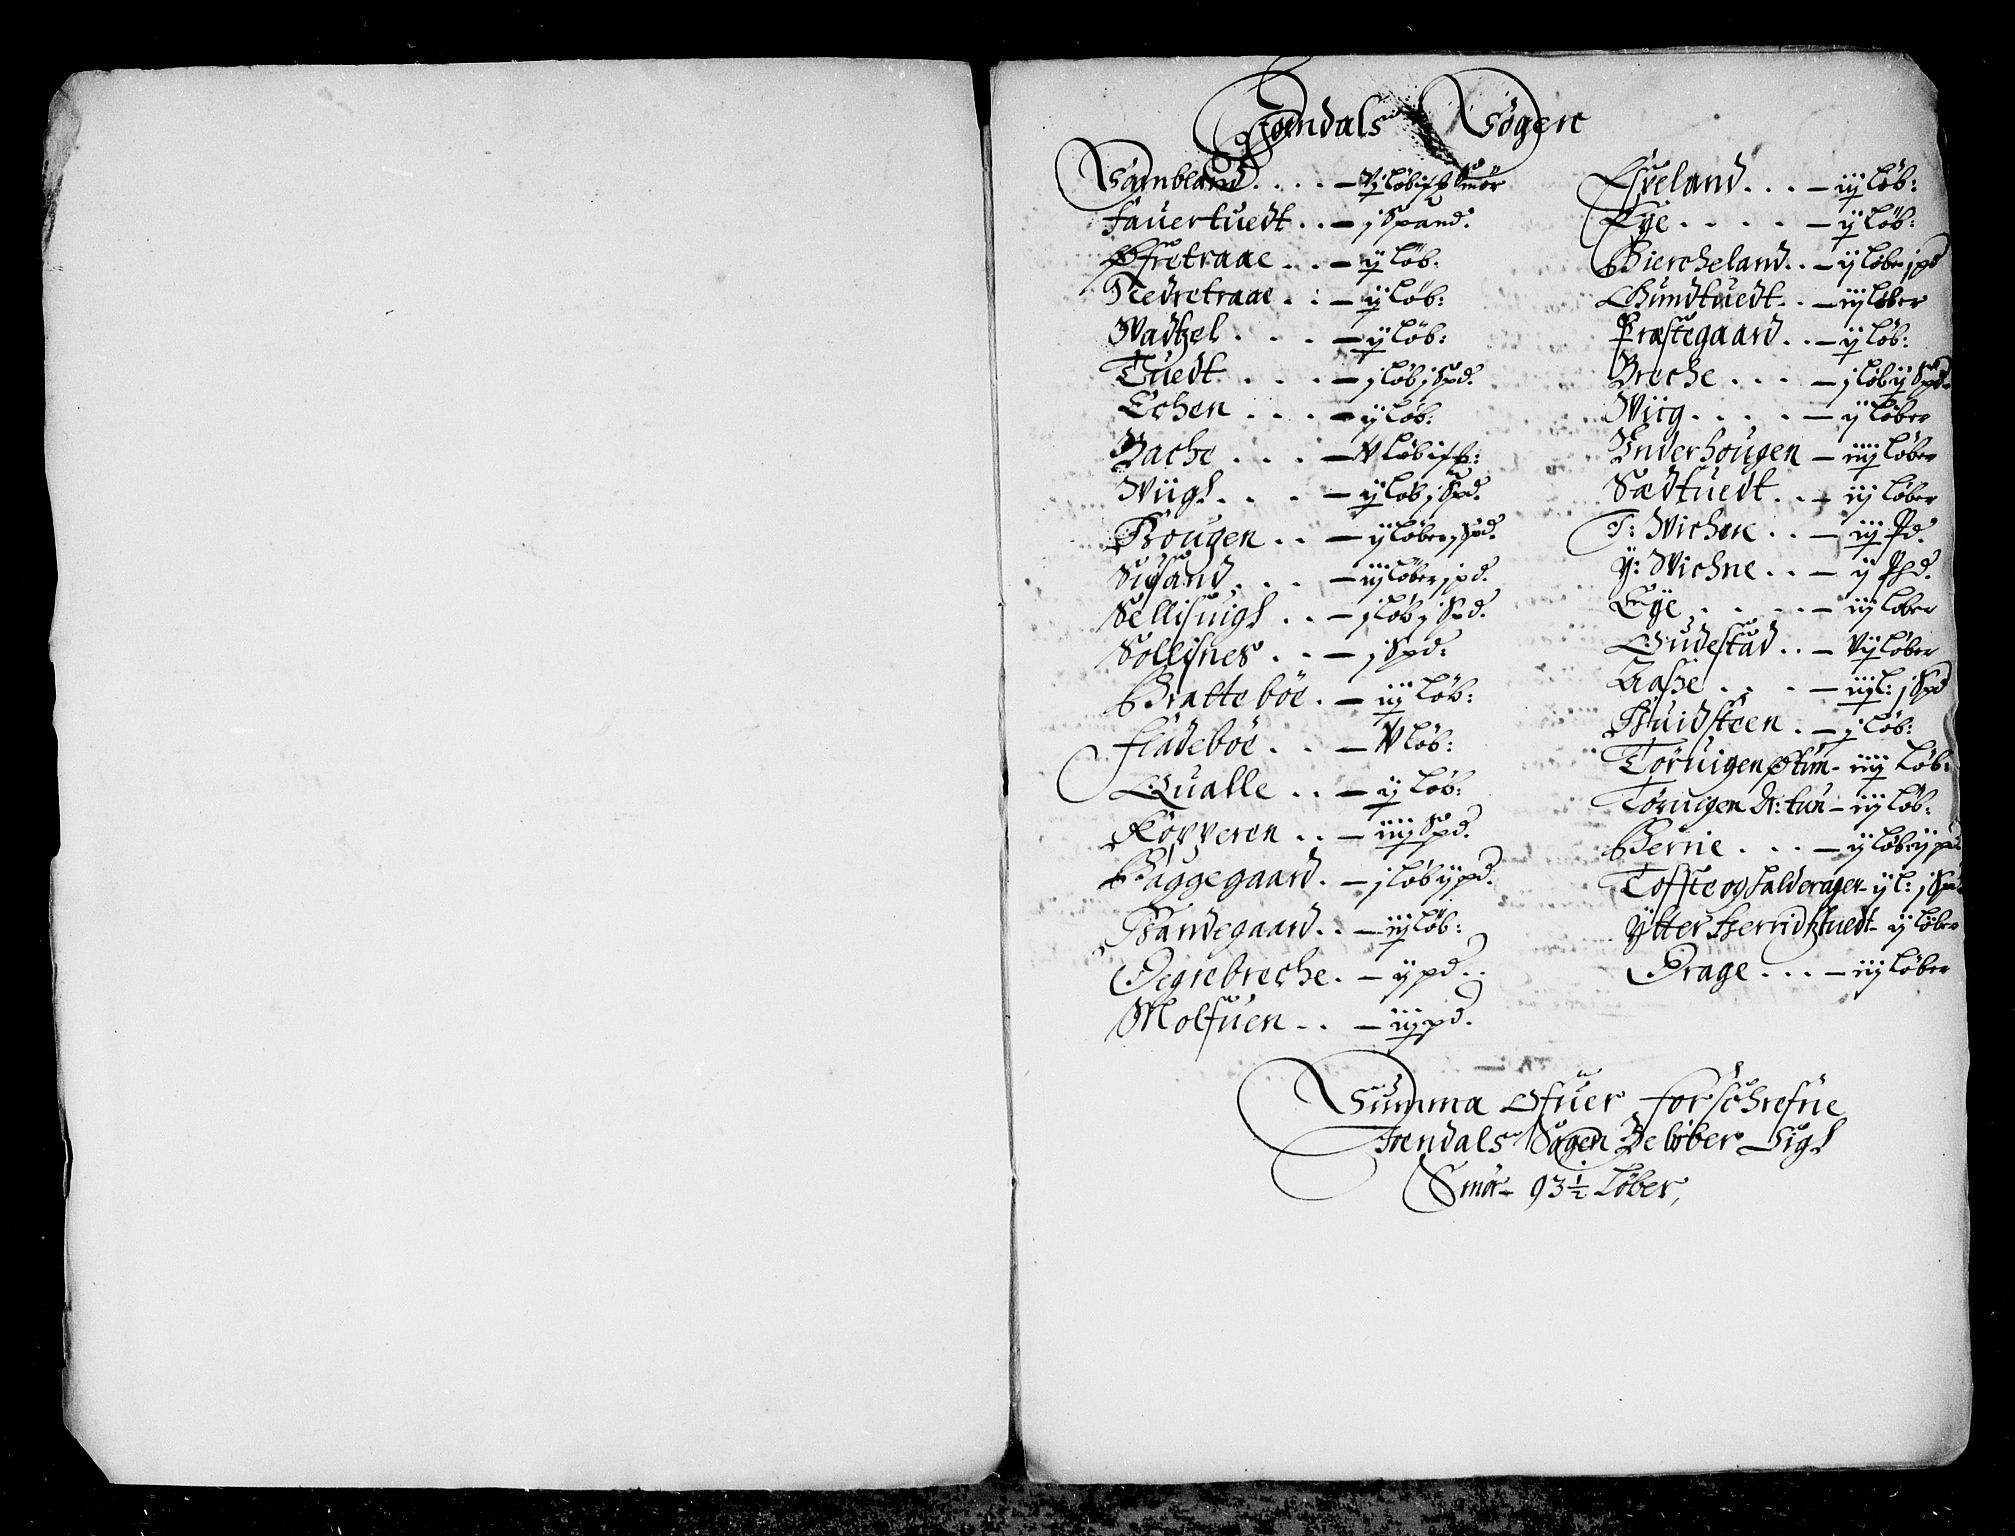 Jondals Sogen
Sambland . . . . – vj løb Smør
Fauertuedt . . – j Spand.
Øfretraae . . – ij løb.
Nedretraae . . – ij løb:
Wadtzel . . . – ij løb:
Tuedt . . . – j løb j Spd.
Echen . . . – ij løb:
Bache . . . – v løb
Wiigh . . . – ij løb j Spd.
Hougen . . – ij løber j Spd.
Siusand . . . – iij løber j pd.
Sellisuigh . . – j løb j Spd.
Sollisnes . . – j Spd:
Brattebøe . – iij løb:
Fladebøe . . – v løb:
Qualle . . – ij løb:
Kørveren . . – iiij Spd.
Baggegaard . – j løb ij pd.
Handegaard . . – iij løb:
Degrebreche . – ij pd . .
Molfuen . . – iij pd.
Espeland . . . – iij løb:
Eye . . . . – ij løb:
Biercheland . . – ij løber j pd
Gundtuedt . . – iij løber
Præstegaard . . – ij løb:
Breche . . . – j løb ij Spd.
Wiig . . . . – ij løber
Underhougen – iiij løber
Sædtuedt . . – iij løber
J: Wichne . . – iij Pd.
Y: Wichne . . – ij Phd.
Eye . . . . – iij løber
Gudestad . . – vij løber
Aase . . . – iij l: j Spd
Huidsteen . – j løb:
Tøruigen Ø tun – iiij løb:
Tøruigen N: tun – iij løb:
Berrie . . . – ij løb ij pd.
Toffte og falderager – ij l: j Spd
Ytter Herridztuedt – ij løber
Drage . . . – iij løber
Summa Ofuer forschrefne
Jondals Sogen Beløber Sigh
Smør – 93½ løber,